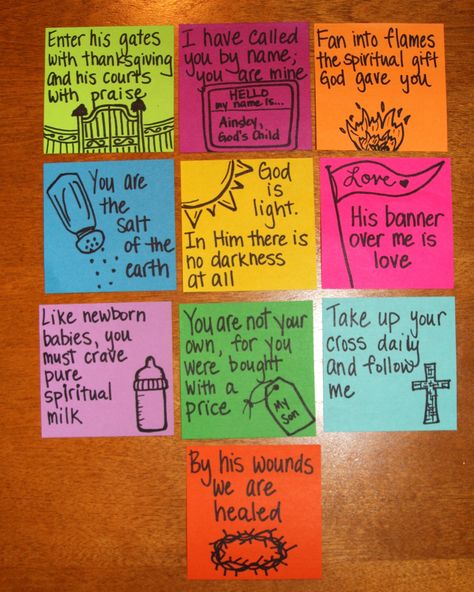 Enter his gates
with thanksgiving
and his courts
with praise
I have called
you by name;
you are mine
HELLO
my name is...
Ainsley,
God's Child
Fan into flames
the spiritual gift
God gave you
You are
the
salt
of the
earth
God
is
light.
In Him there is
no darkness
at all
Love
His banner
over me is
love
Like newborn
babies, you
must crave
pure
spiritual
milk
You are not your
own, for you
were bought
with a
price
My
Son
Take up your
cross daily
and follow
me
By his wounds
we are
healed